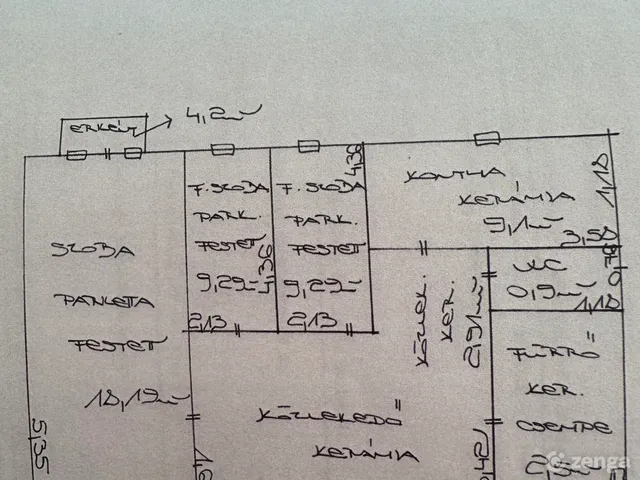 ERKÉLY
4,2m²
SZOBA
PARKETTA
FESTETT
18,19m²
5,35
F.SZOBA
PARK.
FESTETT
9,29m²
4,36
2,13
F.SZOBA
PARK.
FESTETT
9,29m²
2,13
4,36
KONYHA
KERÁMIA
9,1m²
1,18
3,58
WC
0,9m²
0,76
1,18
KÖZLEK.
KER.
2,91m²
KÖZLEKEDŐ
KERÁMIA
FÜRDŐ
KER.
CSEMPE
zenga